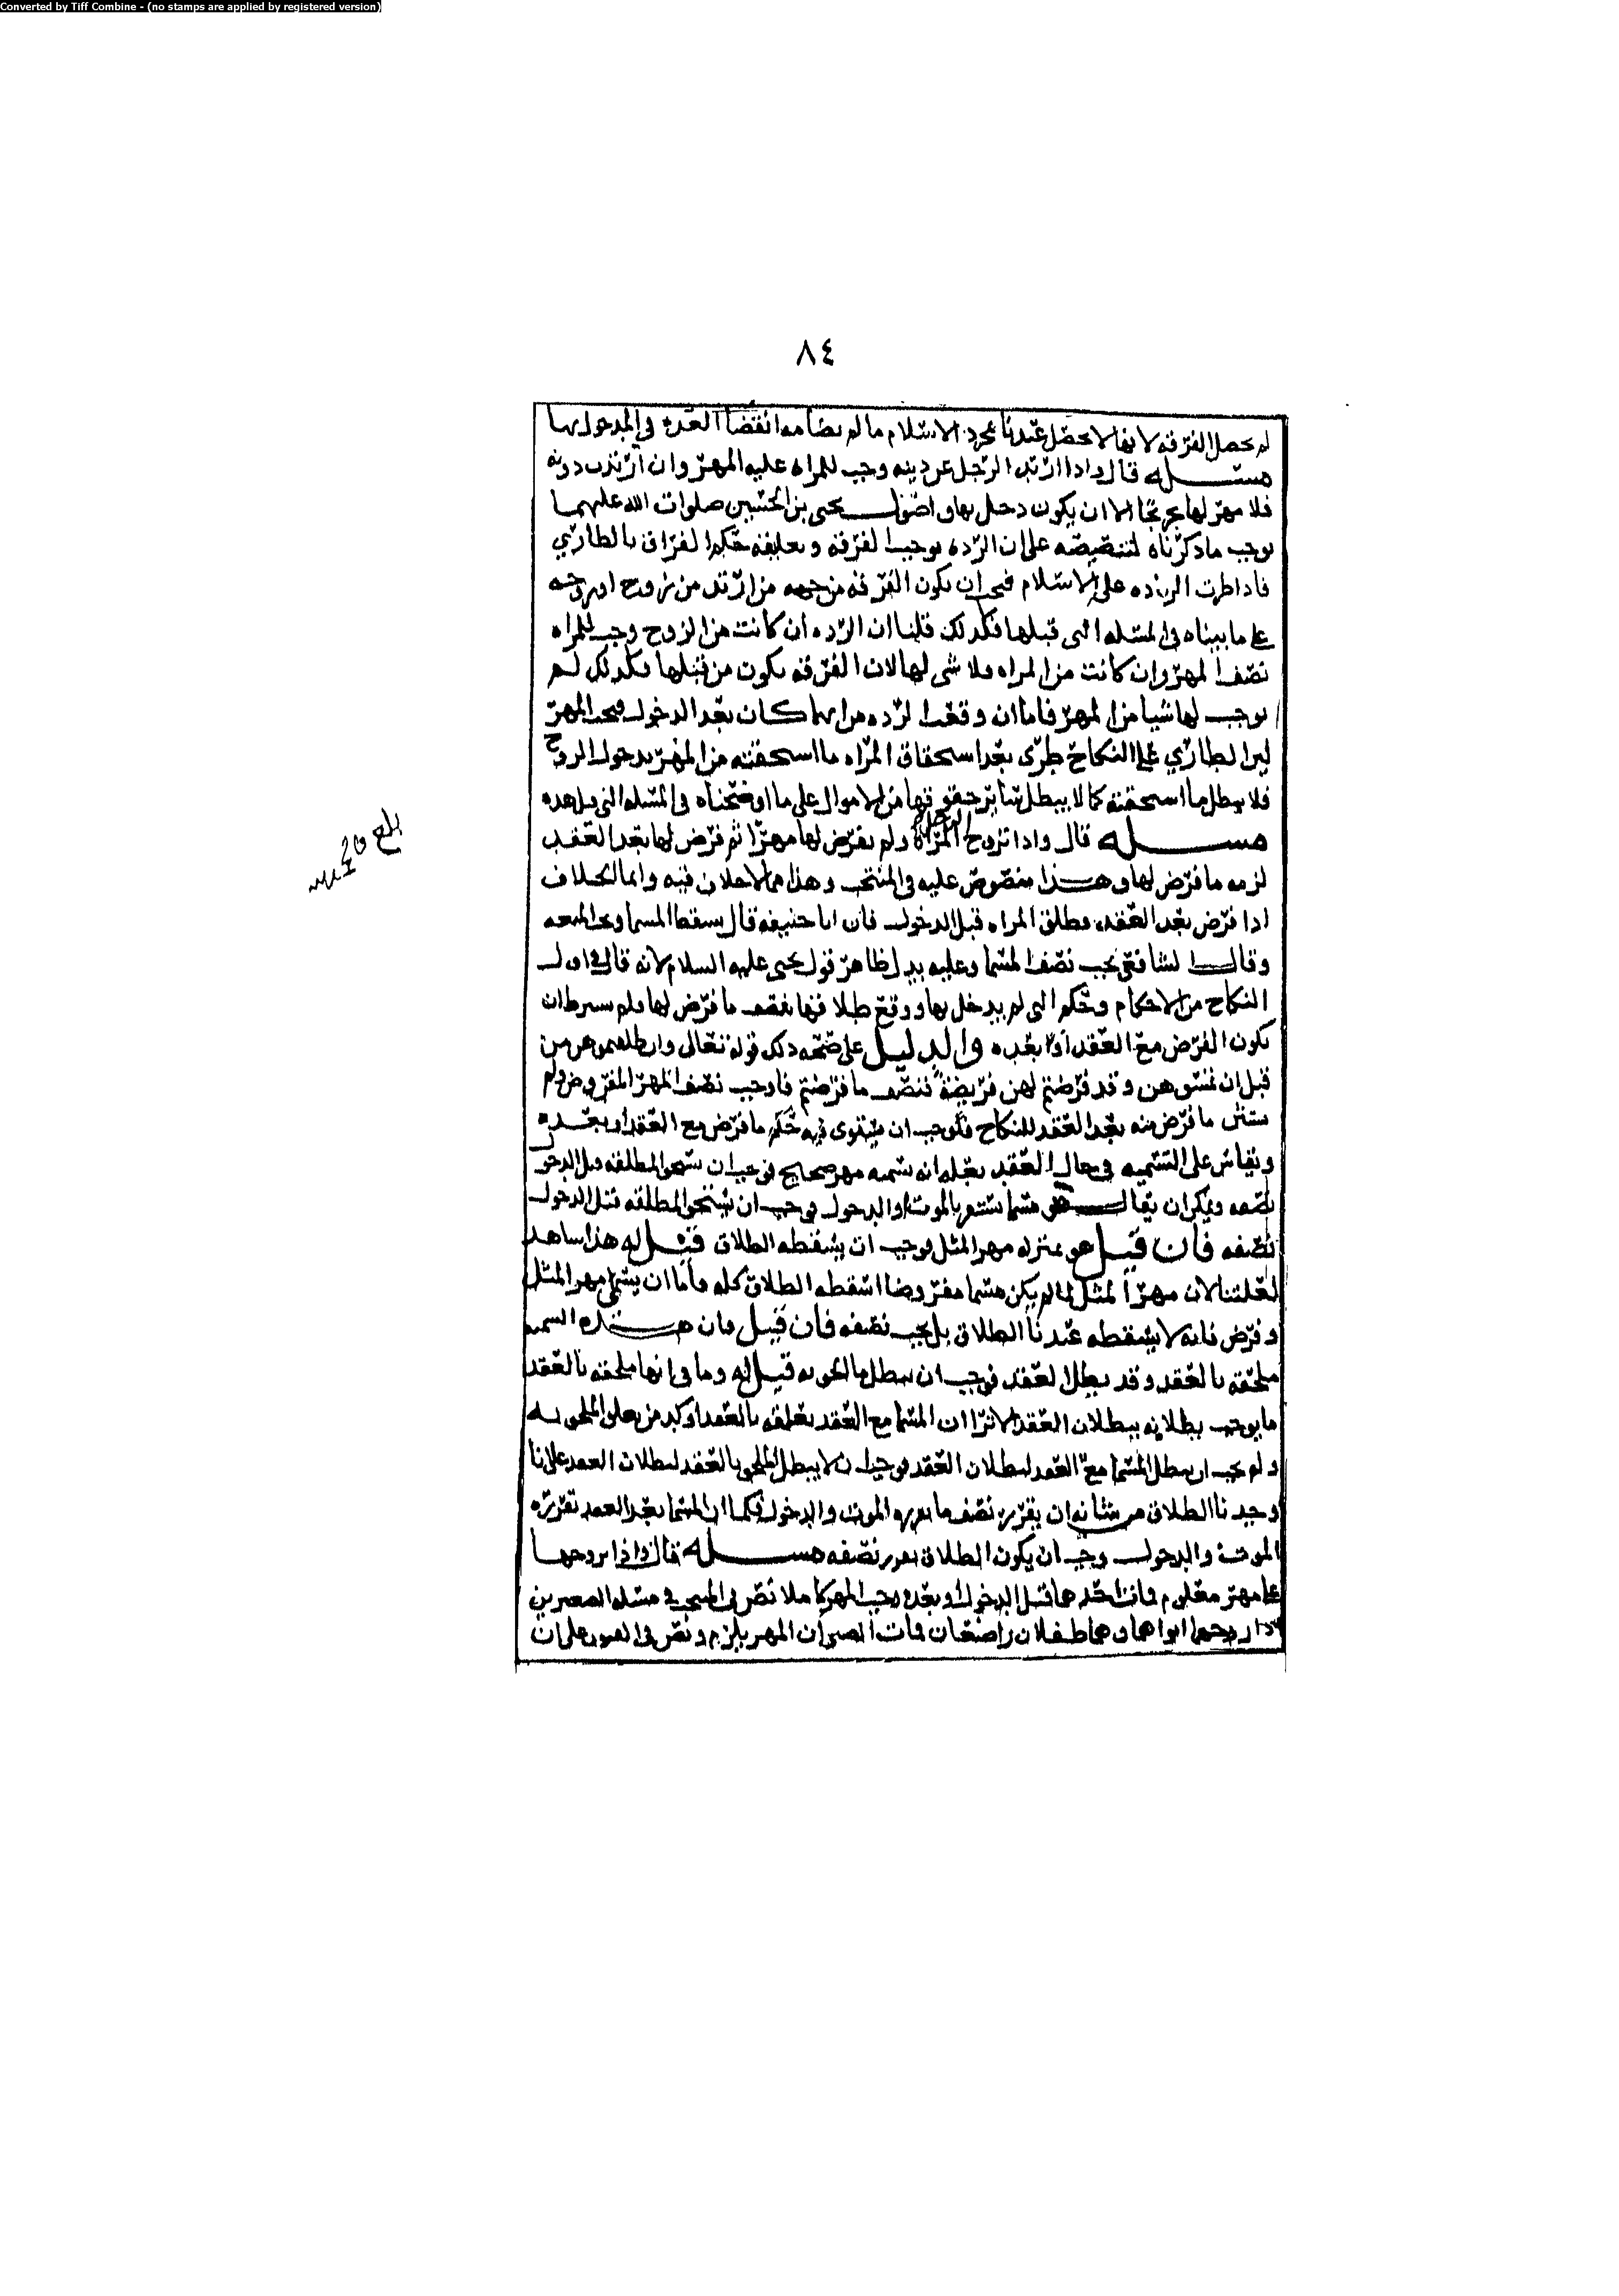 Converted by Tiff Combine - (no stamps are applied by registered version)
٨٤
لم تحصل الفرقة لانها لا تحصل عندنا بمجرد الاسلام ما لم يضامه انقضا العدة في المدخول بها
مسئلة قال واذا ارتد الرجل عن دينه وجب للمراه عليه المهر وان ارتدت دونه
فلا مهر لها الا ان يكون دخل بها واصول يحيى بن الحسين صلوات الله عليهما
توجب ما ذكرناه لتنصيصه على ان الرده توجب الفرقه وتعليقه حكم الفراق بالطاري
فاذا طرت الرده على الاسلام فيجب ان تكون الفرقه من جهه من ارتد من زوج او زوجه
على ما بيناه في المسئله التي قبلها فكذلك قلنا ان الرده ان كانت من الزوج وجب للمراه
نصف المهر وان كانت من المراه فلا شي لها لان الفرقه تكون من قبلها فكذلك لم
يوجب لها شيا من المهر فاما ان وقعت الرده من ايهما كان بعد الدخول فيجب المهر
لان الطاري على النكاح طرى بعد استحقاق المراه ما استحقته من المهر بدخول الزوج
فلا يبطل ما استحقته كما لا يبطل سائر حقوقها من الاموال على ما اوضحناه في المسئله التي قبل هذه
مسئله قال واذا تزوج الرجل المراة ولم يفرض لها مهرا ثم فرض لها بعد العقد
لزمه ما فرض لها وهذا منصوص عليه في المنتخب وهذا مما لا خلاف فيه وانما الخلاف
اذا فرض بعد العقد وطلق المراه قبل الدخول فان ابا حنيفه قال يسقط المسما وتجب المتعه
وقال الشافعي يجب نصف المسما وعليه يدل ظاهر قول يحيى عليه السلام لانه قال في اول
النكاح من الاحكام وحكم التي لم يدخل بها ووقع طلاقها نصف ما فرض لها ولم يشترط ان
يكون الفرض مع العقد او بعده والدليل على صحه ذلك قوله تعالى وان طلقتموهن من
قبل ان تمسوهن وقد فرضتم لهن فريضة فنصف ما فرضتم فاوجب نصف المهر المفروض ولم
يستثن ما فرض منه بعد العقد للنكاح فوجب ان يستوى فيه حكم ما فرض مع العقد او بعده
ويقاس على التسميه في حال العقد بعلة انه تسميه مهر صحيح فوجب ان تستحق المطلقه قبل الدخول
نصفه ويمكن ان يقال هو مسما يستقر بالموت او الدخول فوجب ان تستحق المطلقه قبل الدخول
نصفه فان قيل هو بمنزله مهر المثل فوجب ان يسقطه الطلاق قيل له هذا شاهد
لعلتنا لان مهر المثل لما لم يكن مسما مفروضا اسقطه الطلاق كله فاما ان يسمى مهر المثل
وفرض فانه لا يسقطه عندنا الطلاق بل يجب نصفه فان قيل فان هذه التسميه
ملحقه بالعقد وقد بطل العقد فوجب ان يبطل ما لحق به قيل له وما في انها ملحقه بالعقد
ما يوجب بطلانه ببطلان العقد الا ترا ان المسما مع العقد تعلقه بالعقد اوكد من تعلق الملحق به
ولم يجب ان يبطل المسما مع العقد لبطلان العقد فوجب ان لا يبطل الملحق بالعقد لبطلان العقد على انا
وجدنا الطلاق من شانه ان يقرر نصف ما يقرره الموت والدخول فكما ان المسما بعد العقد تقرره
الموت والدخول وجب ان يكون الطلاق يقرر نصفه مسئله قال واذا تزوجها
على مهر معلوم فمات احدهما قبل الدخول او بعده وجب المهر كاملا نص في المنتخب في مسئله الصغيرين
اذا زوجهما ابواهما وهما طفلان راضعان فمات الصبي ان المهر يلزم ونص في الفنون على ان
بلغ